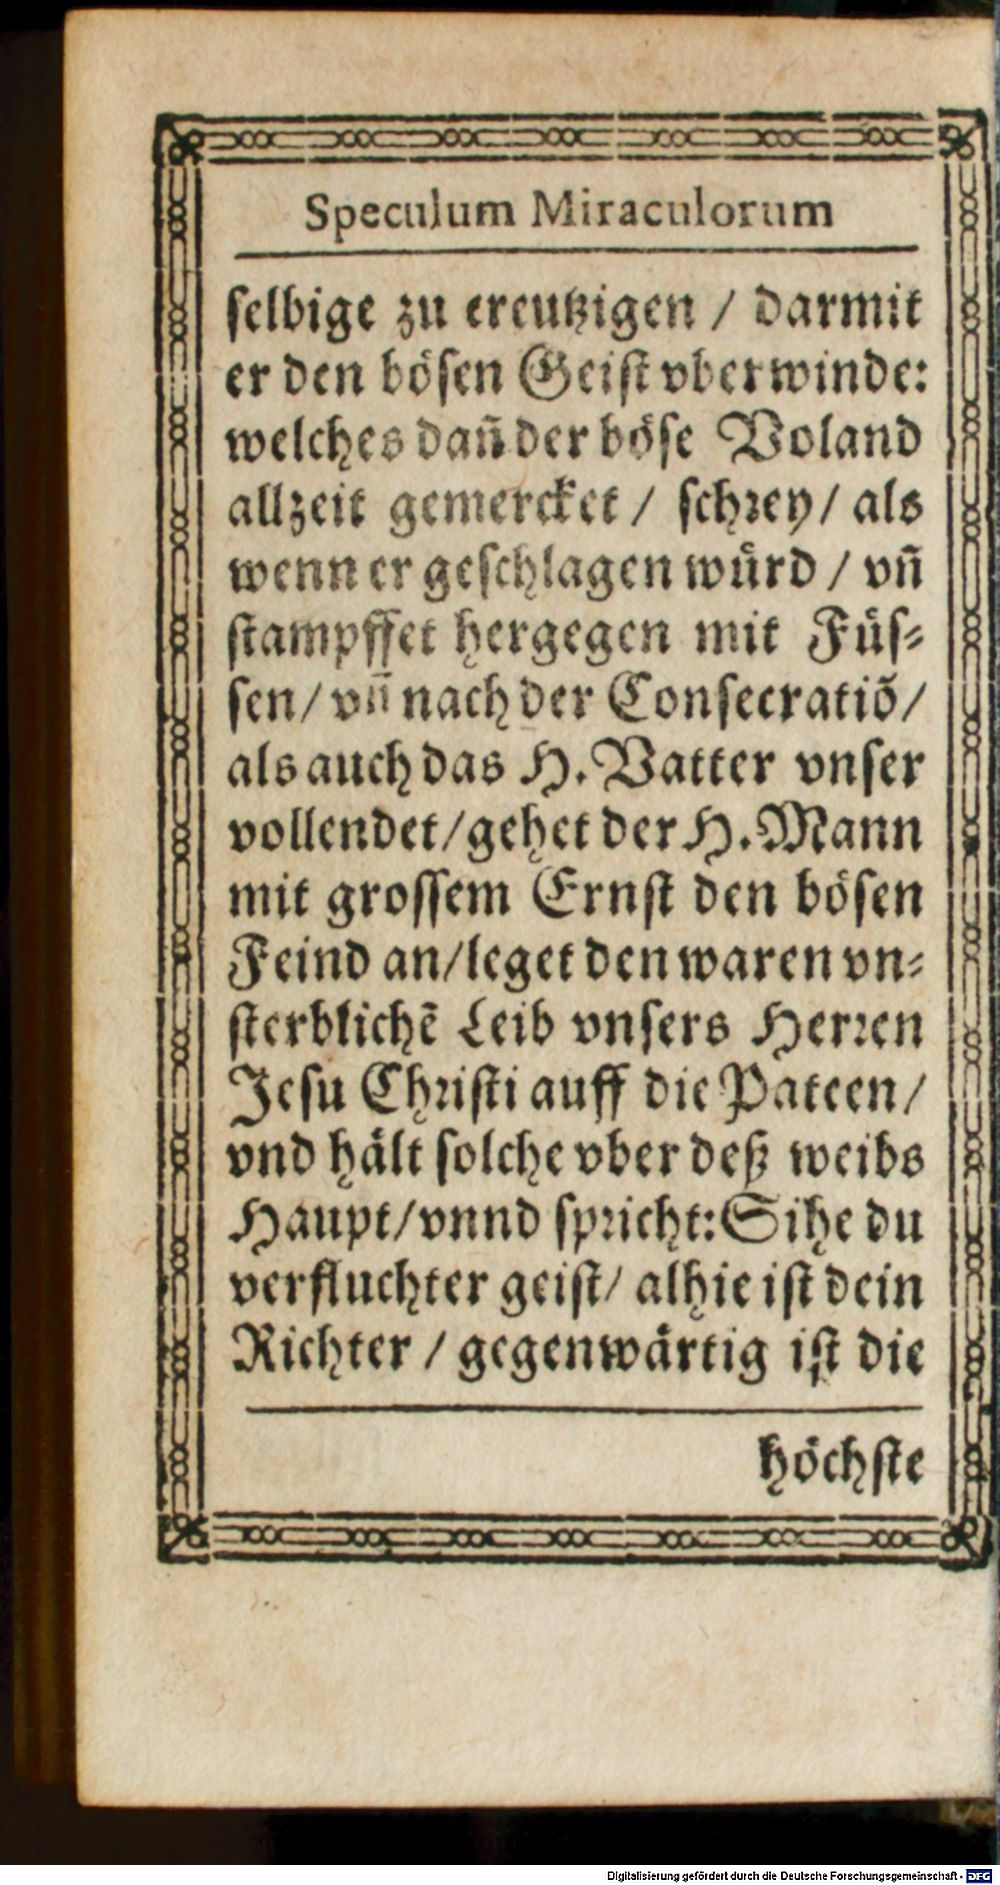 Speculum Miraculorum
ſelbige zu creutzigen / darmit
er den böſen Geiſt vberwinde:
welches dañ der böſe Voland
allzeit gemercket / ſchrey / als
wenn er geſchlagen würd / vñ
ſtampffet hergegen mit Füſ⸗
ſen / vñ nach der Conſecratiõ /
als auch das H. Vatter vnſer
vollendet / gehet der H. Mann
mit groſſem Ernſt den böſen
Feind an / leget den waren vn⸗
ſterblichẽ Leib vnſers Herꝛen
Jeſu Chꝛiſti auff die Pateen /
vnd hält ſolche vber deß weibs
Haupt / vnnd ſpꝛicht: Sihe du
verfluchter geiſt / alhie iſt dein
Richter / gegenwärtig iſt die
höchſte
Digitalisierung gefördert durch die Deutsche Forschungsgemeinschaft - DFG